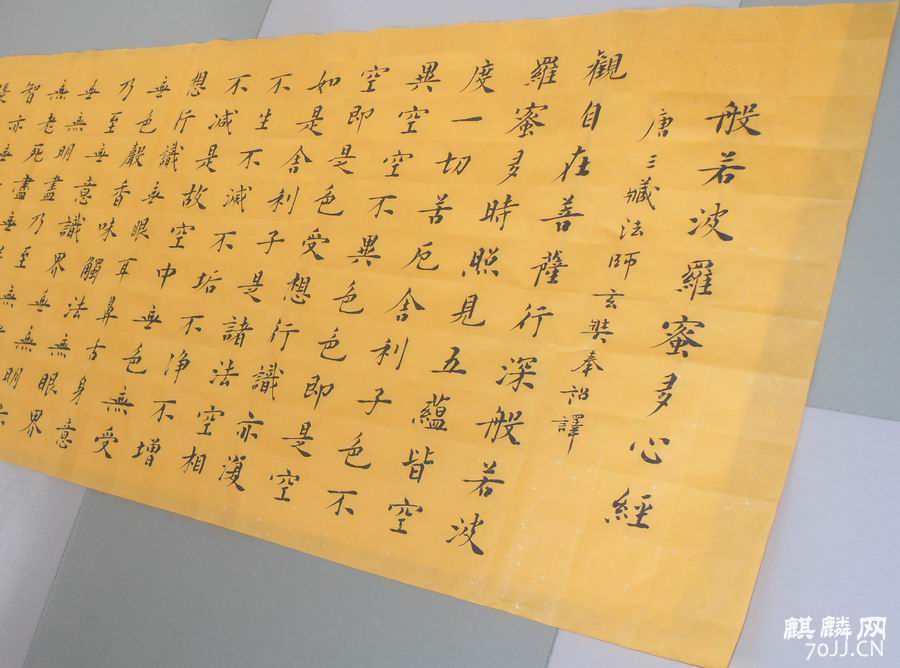 般若波羅蜜多心經
唐三藏法師玄奘奉詔譯
觀自在菩薩行深般若波
羅蜜多時照見五蘊皆空
度一切苦厄舍利子色不
異空空不異色色即是空
空即是色受想行識亦復
如是舍利子是諸法空相
不生不滅不垢不净不增
不減是故空中無色無受
想行識無眼耳鼻舌身意
無色聲香味觸法無眼界
乃至無意識界無無明亦
無無明盡乃至無
無老死盡無
智亦無
麒麟网
70JJ.CN